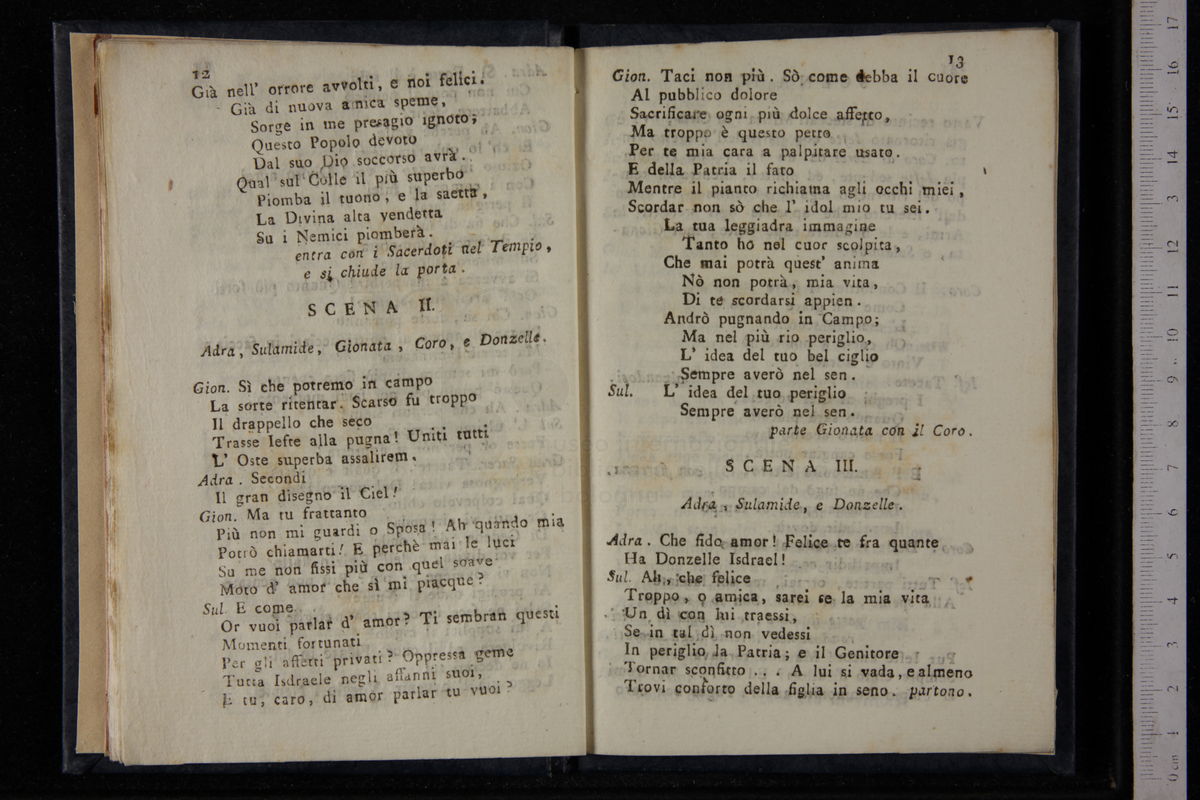 12
Già nell' orrore avvolti, e noi felici.
Già di nuova amica speme,
Sorge in me presagio ignoto;
Questo Popolo devoto
Dal suo Dio soccorso avrà.
Qual sul Colle il più superbo
Piomba il tuono, e la saetta,
La Divina alta vendetta
Su i Nemici piomberà.
entra con i Sacerdoti nel Tempio,
e si chiude la porta.
SCENA II.
Adra, Sulamide, Gionata, Coro, e Donzelle.
Gion. Sì che potremo in campo
La sorte ritentar. Scarso fu troppo
Il drappello che seco
Trasse Iefte alla pugna! Uniti tutti
L' Oste superba assalirem.
Adra. Secondi
Il gran disegno il Ciel!
Gion. Ma tu frattanto
Più non mi guardi o Sposa! Ah quando mia
Potrò chiamarti! E perchè mai le luci
Su me non fissi più con quel soave
Moto d' amor che sì mi piacque?
Sul. E come
Or vuoi parlar d' amor? Ti sembran questi
Momenti fortunati
Per gli affetti privati? Oppressa geme
Tutta Isdraele negli affanni suoi,
E tu, caro, di amor parlar tu vuoi?
13
Gion. Taci non più. Sò come debba il cuore
Al pubblico dolore
Sacrificare ogni più dolce affetto,
Ma troppo è questo petto
Per te mia cara a palpitare usato.
E della Patria il fato
Mentre il pianto richiama agli occhi miei,
Scordar non sò che l' idol mio tu sei.
La tua leggiadra immagine
Tanto ho nel cuor scolpita,
Che mai potrà quest' anima
Nò non potrà, mia vita,
Di te scordarsi appien.
Andrò pugnando in Campo;
Ma nel più rio periglio,
L' idea del tuo bel ciglio
Sempre averò nel sen.
Sul. L' idea del tuo periglio
Sempre averò nel sen.
parte Gionata con il Coro.
SCENA III.
Adra, Sulamide, e Donzelle.
Adra. Che fido amor! Felice te fra quante
Ha Donzelle Isdrael!
Sul. Ah, che felice
Troppo, o amica, sarei se la mia vita
Un dì con lui traessi,
Se in tal dì non vedessi
In periglio la Patria; e il Genitore
Tornar sconfitto . . . A lui si vada, e almeno
Trovi conforto della figlia in seno. partono.
0 cm 1 2 3 4 5 6 7 8 9 10 11 12 3 14 15 16 17